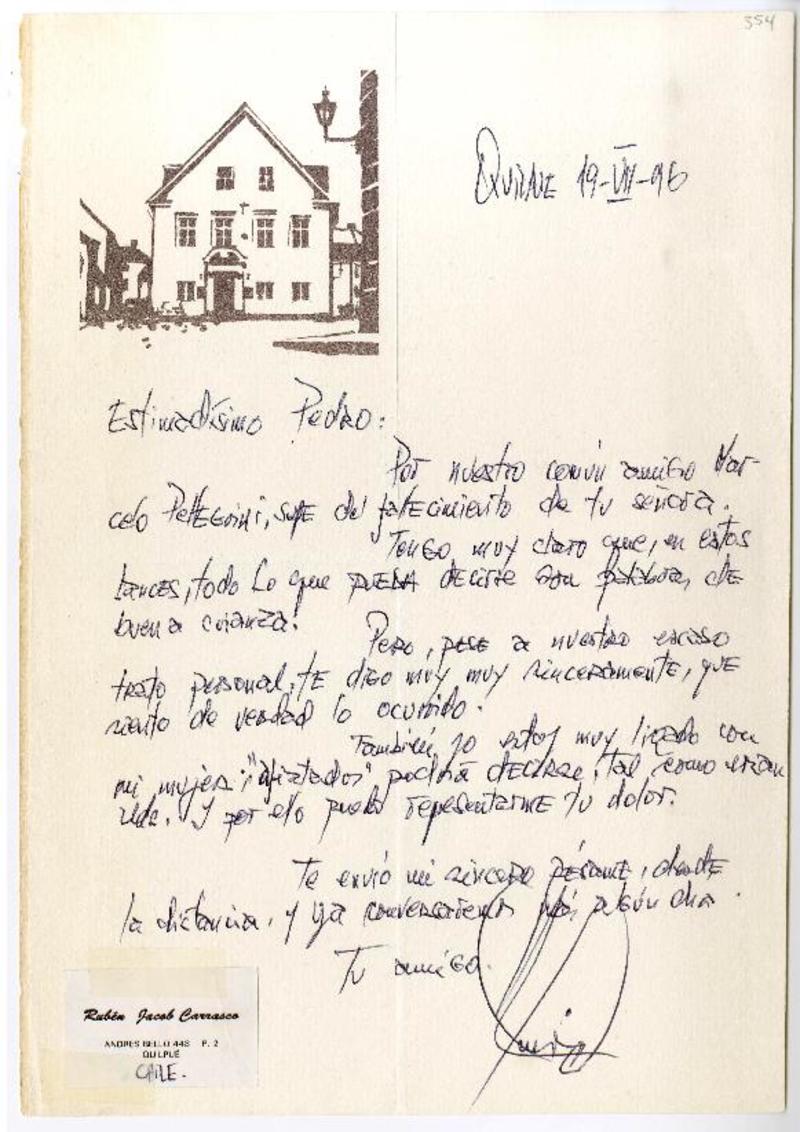 354
Quilpué 19-VII-96
Estimadísimo Pedro:
Por nuestro común amigo Mar-
celo Pellegrini, supe del fallecimiento de tu señora.
Tengo muy claro que, en estos
lances, todo lo que pueda decirse son palabras de
buena crianza.
Pero, pese a nuestro escaso
trato personal, te digo muy muy sinceramente, que
siento de verdad lo ocurrido.
También yo estoy muy ligado con
mi mujer; "afiatados" podría decirse, tal como erían
Uds. Y por ello puedo representarme tu dolor.
Te envió mi sincero pésame, desde
la distancia, y ya conversaremos más algún día.
Tu amigo.
Rubén Jacob Carrasco
ANDRES BELLO 448 P. 2
QUILPUÉ
CHILE.